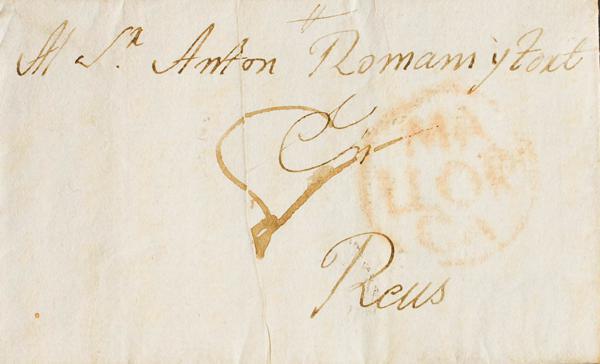 Al Sr. Anton Romani y Font
En
Reus
MA
LLOR
CA